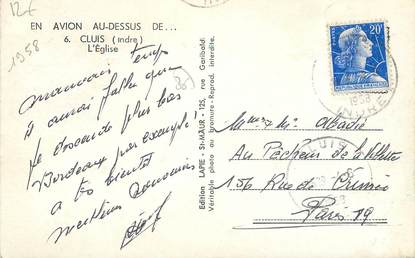 12f
1958
EN AVION AU-DESSUS DE...
6. CLUIS (Indre)
L'Église
mauvais temps
il aurait fallu que
je descende plus bas
Bordeaux par exemple!
a très bientôt
meilleurs souvenirs
Edition LAPIE - St-MAUR - 125, rue Garibaldi
Véritable photo au bromure - Reprod. interdite.
20f
1958
INDRE
CLUIS
Mme & M. Abadie
Au Pêcheur de la Villette
156 Rue de Crimée
Paris 19